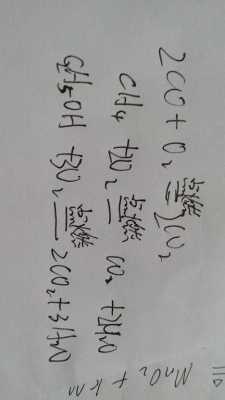 2CO + O₂ 点燃 2CO₂
CH₄ + 2O₂ 点燃 CO₂ + 2H₂O
C₂H₅OH + 3O₂ 点燃 2CO₂ + 3H₂O
MnO₂ +